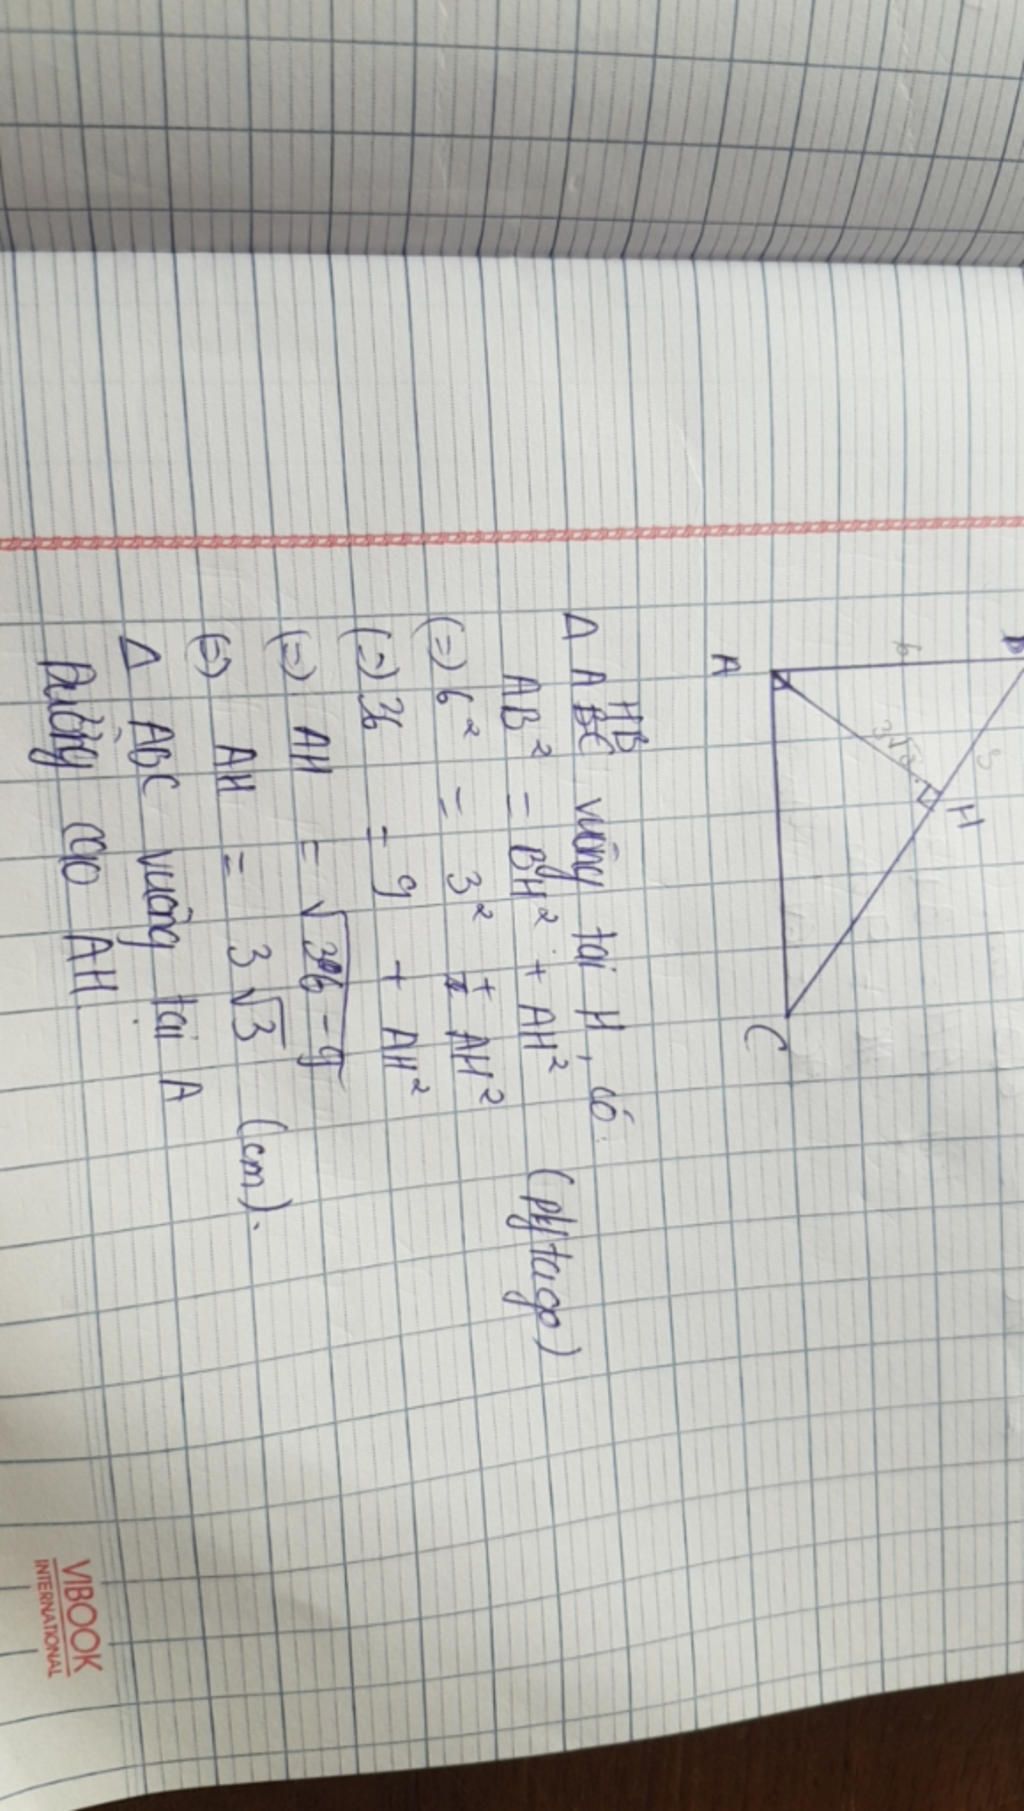 B
6
3
3√3
H
A
C
Δ AHB vuông tại H, có:
AB² = BH² + AH² (pytago)
(=) 6² = 3² + AH²
(=) 36 = 9 + AH²
(=) AH = √36-9
(=) AH = 3√3 (cm).
Δ ABC vuông tại A
Đường cao AH
VIBOOK
INTERNATIONAL